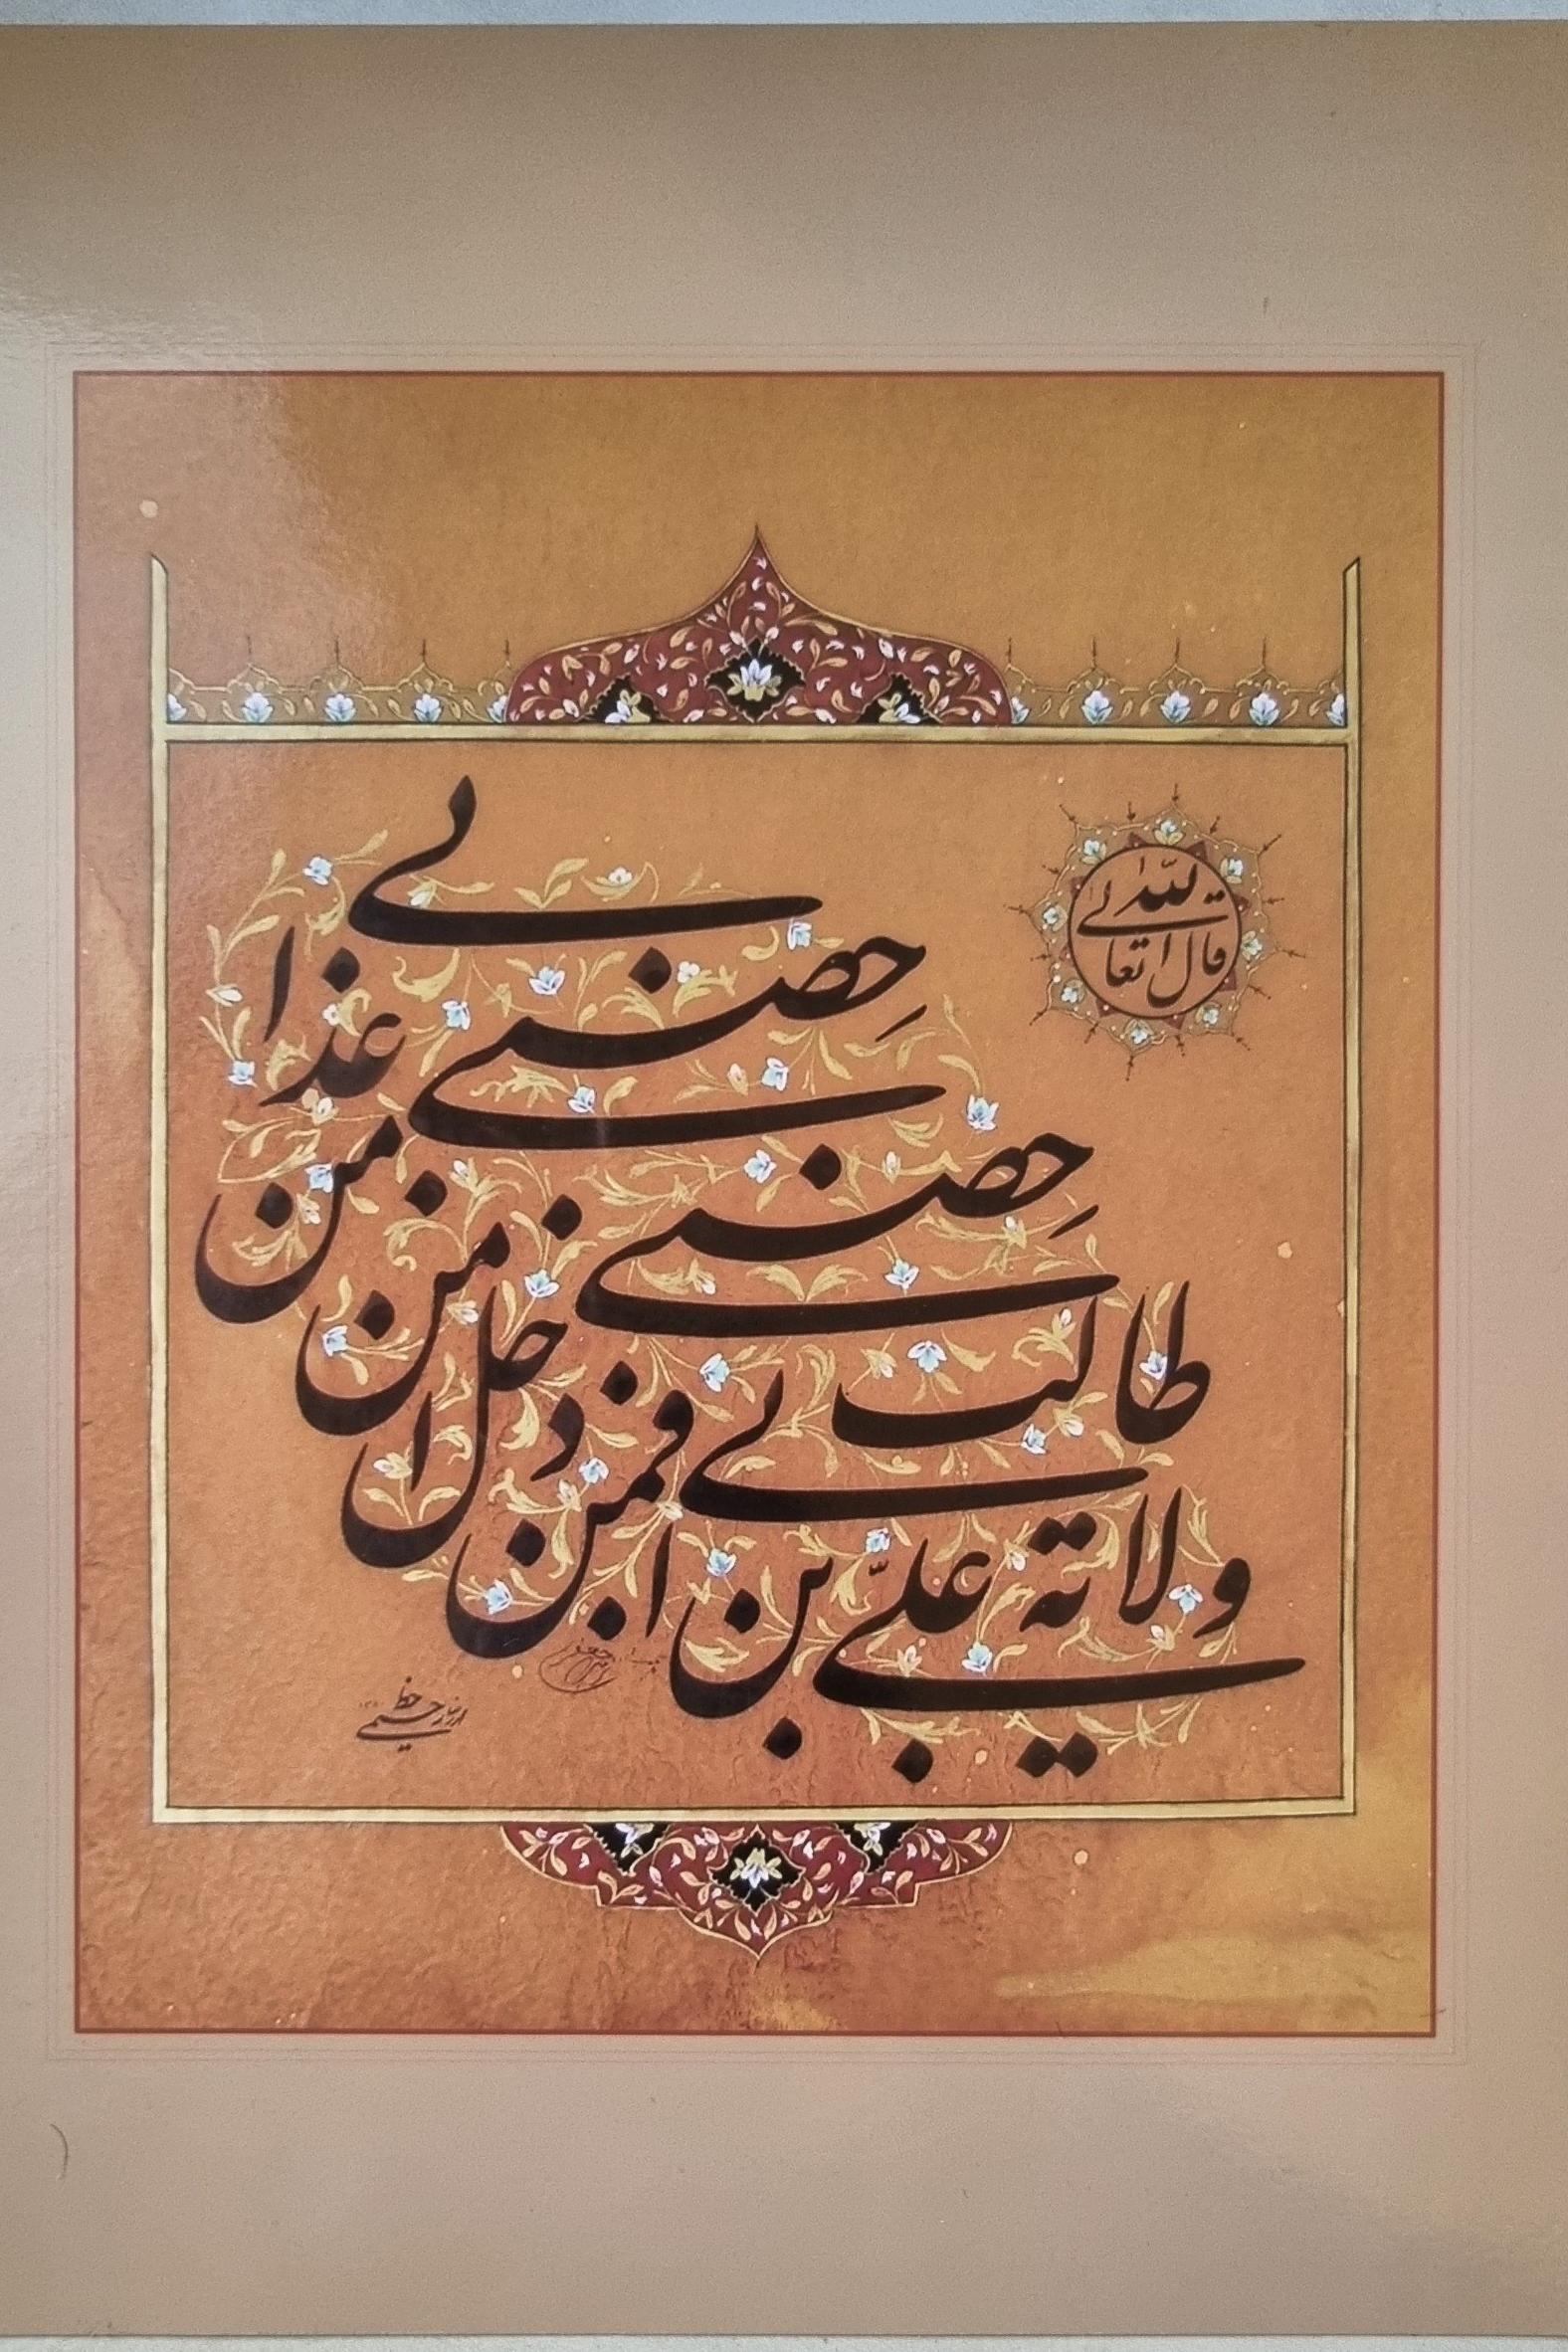 قال الله تعالی
ولایة علیّ بن ابی
طالب حِصنی فمن دخل
حِصنی امن من عذابی